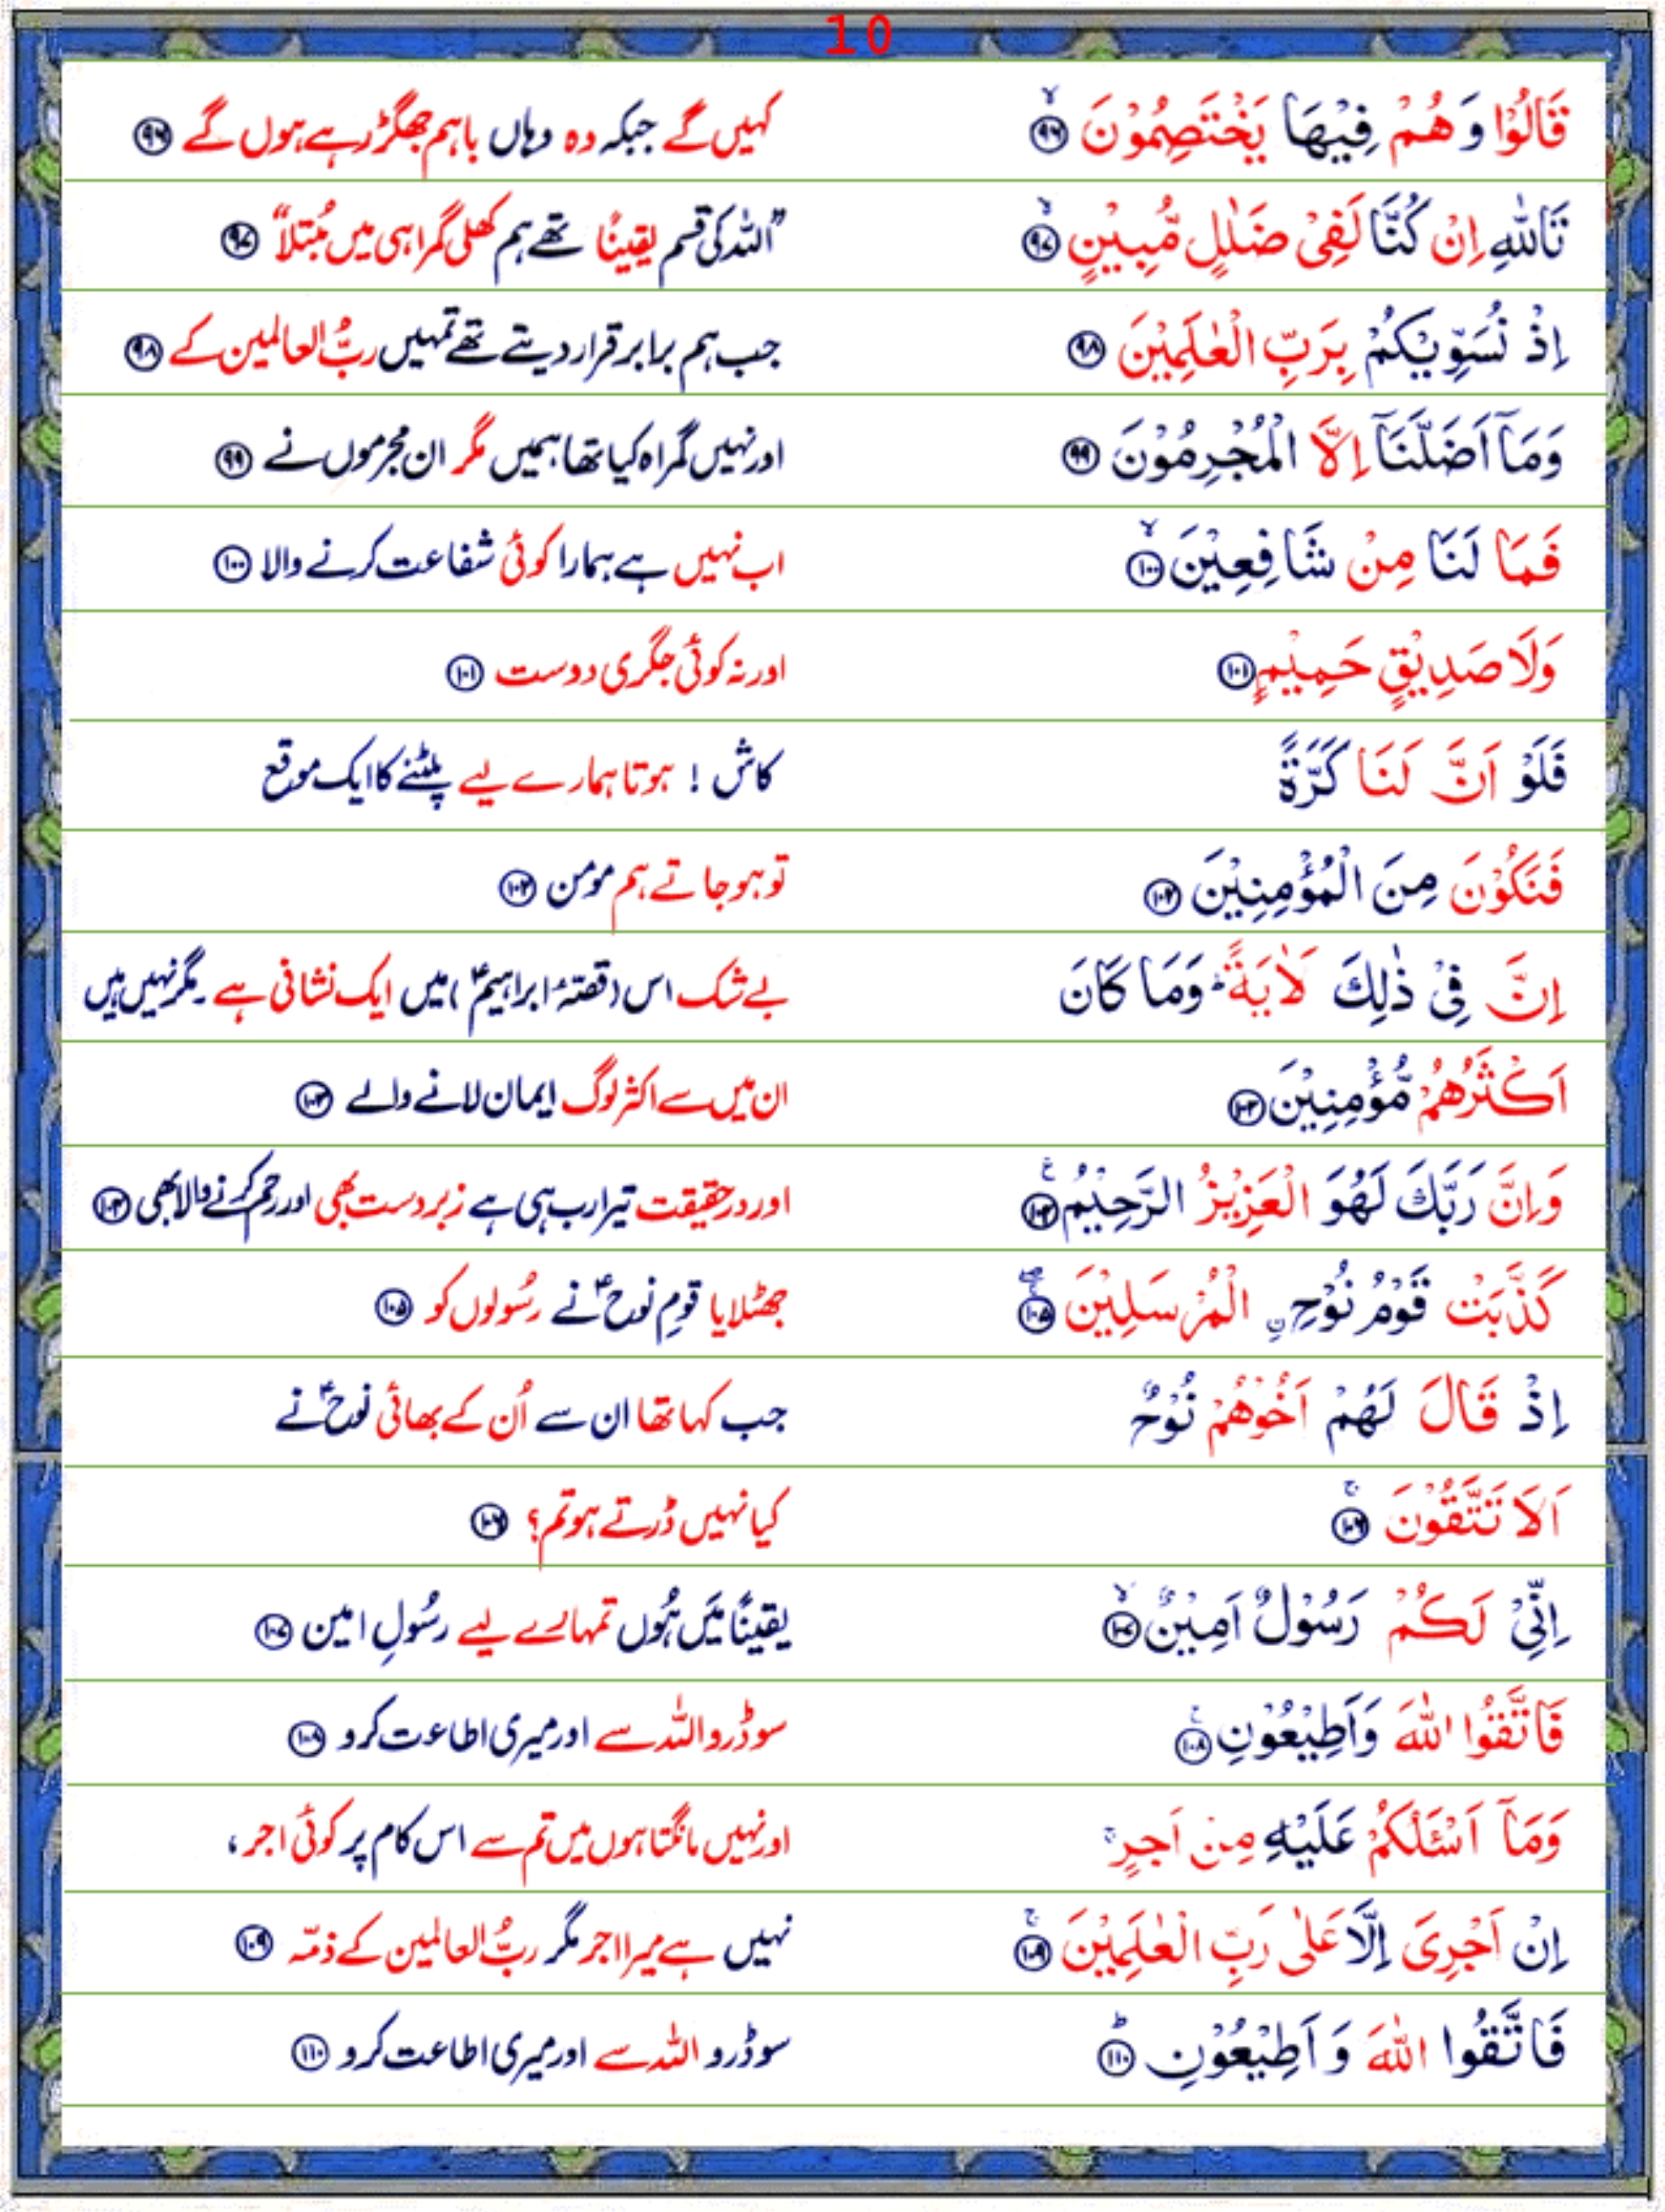 10
قَالُوْا وَهُمْ فِيْهَا يَخْتَصِمُوْنَ ۙ﴿۹۶﴾ کہیں گے جبکہ وہ وہاں باہم جھگڑ رہے ہوں گے ﴿۹۶﴾
تَاللّٰهِ اِنْ كُنَّا لَفِىْ ضَلٰلٍ مُّبِيْنٍ ۙ﴿۹۷﴾ ”اللہ کی قسم یقیناً تھے ہم کھلی گمراہی میں مُبتلا“ ﴿۹۷﴾
اِذْ نُسَوِّيْكُمْ بِرَبِّ الْعٰلَمِيْنَ ﴿۹۸﴾ جب ہم برابر قرار دیتے تھے تمہیں ربُّ العالمین کے ﴿۹۸﴾
وَمَاۤ اَضَلَّنَاۤ اِلَّا الْمُجْرِمُوْنَ ﴿۹۹﴾ اور نہیں گمراہ کیا تھا ہمیں مگر ان مجرموں نے ﴿۹۹﴾
فَمَا لَنَا مِنْ شَافِعِيْنَ ۙ﴿۱۰۰﴾ اب نہیں ہے ہمارا کوئی شفاعت کرنے والا ﴿۱۰۰﴾
وَلَا صَدِيْقٍ حَمِيْمٍ ﴿۱۰۱﴾ اور نہ کوئی جگری دوست ﴿۱۰۱﴾
فَلَوْ اَنَّ لَنَا كَرَّةً کاش ! ہوتا ہمارے لیے پلٹنے کا ایک موقع
فَنَكُوْنَ مِنَ الْمُؤْمِنِيْنَ ﴿۱۰۲﴾ تو ہو جاتے ہم مومن ﴿۱۰۲﴾
اِنَّ فِىْ ذٰلِكَ لَاٰيَةً ؕ وَمَا كَانَ بے شک اس (قصّۂ ابراہیمؑ) میں ایک نشانی ہے۔ مگر نہیں ہیں
اَكْثَرُهُمْ مُّؤْمِنِيْنَ ﴿۱۰۳﴾ ان میں سے اکثر لوگ ایمان لانے والے ﴿۱۰۳﴾
وَاِنَّ رَبَّكَ لَهُوَ الْعَزِيْزُ الرَّحِيْمُ ﴿۱۰۴﴾ۧ اور درحقیقت تیرا رب ہی ہے زبردست بھی اور رحم کرنے والا بھی ﴿۱۰۴﴾
كَذَّبَتْ قَوْمُ نُوْحِ ۨ الْمُرْسَلِيْنَ ۖۚ﴿۱۰۵﴾ جھٹلایا قومِ نوحؑ نے رسُولوں کو ﴿۱۰۵﴾
اِذْ قَالَ لَهُمْ اَخُوْهُمْ نُوْحٌ جب کہا تھا ان سے اُن کے بھائی نوحؑ نے
اَلَا تَتَّقُوْنَ ۚ﴿۱۰۶﴾ کیا نہیں ڈرتے ہو تم؟ ﴿۱۰۶﴾
اِنِّىْ لَكُمْ رَسُوْلٌ اَمِيْنٌ ۙ﴿۱۰۷﴾ یقیناً مَیں ہُوں تمہارے لیے رسُولِ امین ﴿۱۰۷﴾
فَاتَّقُوا اللّٰهَ وَاَطِيْعُوْنِ ۚ﴿۱۰۸﴾ سو ڈرو اللہ سے اور میری اطاعت کرو ﴿۱۰۸﴾
وَمَاۤ اَسْئَلُكُمْ عَلَيْهِ مِنْ اَجْرٍ ۚ اور نہیں مانگتا ہوں میں تم سے اس کام پر کوئی اجر،
اِنْ اَجْرِىَ اِلَّا عَلٰى رَبِّ الْعٰلَمِيْنَ ۚ﴿۱۰۹﴾ نہیں ہے میرا اجر مگر ربُّ العالمین کے ذمّہ ﴿۱۰۹﴾
فَاتَّقُوا اللّٰهَ وَاَطِيْعُوْنِ ؕ﴿۱۱۰﴾ سو ڈرو اللہ سے اور میری اطاعت کرو ﴿۱۱۰﴾